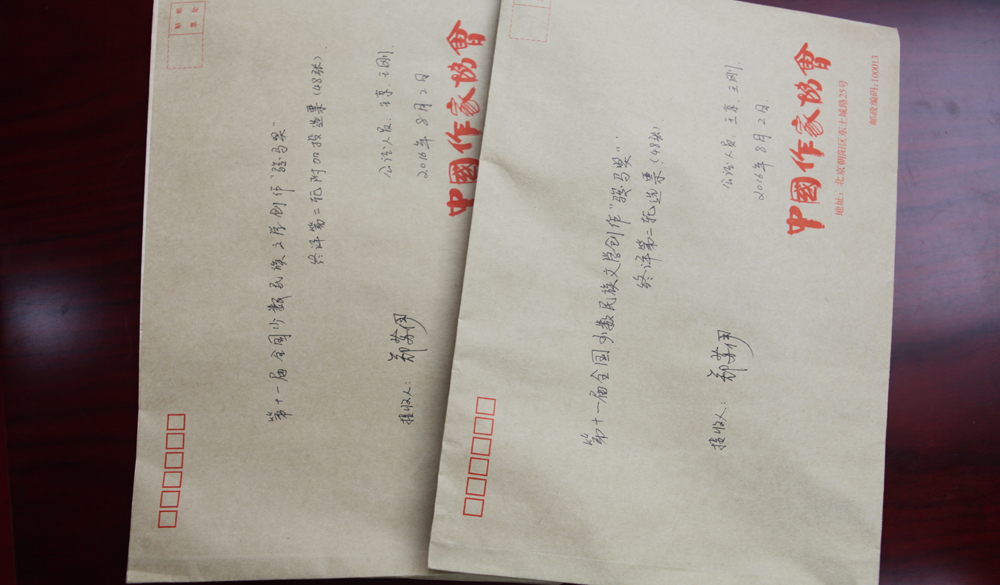 第十一届全国少数民族文学创作“骏马奖”
终评第二轮附加投选票(48张)
公证人员：王京、王刚
2016年8月2日
接收人：郑苏伊
中國作家協會
第十一届全国少数民族文学创作“骏马奖”
终评第二轮选票(48张)
公证人员：王京、王刚
2016年8月2日
接收人：郑苏伊
中國作家協會
地址：北京朝阳区东土城路25号
邮政编码:100013